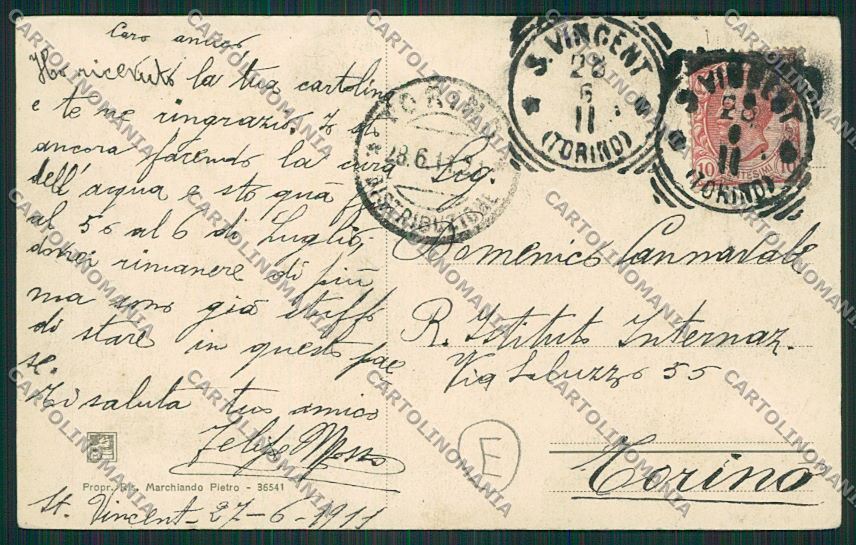 Caro amico
Ho ricevuto la tua cartolina
e te ne ringrazio. Io sto
ancora facendo la cura
dell'acqua e stò quà f
al 5 o al 6 di Luglio,
dovrei rimanere di più,
ma sono già stuffo
di stare in questo pae
se.
Ti saluta tuo amico
Felife Mosso
Propr. Ris. Marchiando Pietro - 36541
St. Vincent - 27-6-1911
TORINO
28.6.11
DISTRIBUZIONE
S. VINCENT
28
6
11
(TORINO)
S. VINCENT
28
6
11
(TORINO)
10 CENTESIMI 10
Sig.
Domenico Cannavale
R. Istituto Internaz.
Via Saluzzo 55
Torino
E
CARTOLINOMANIA